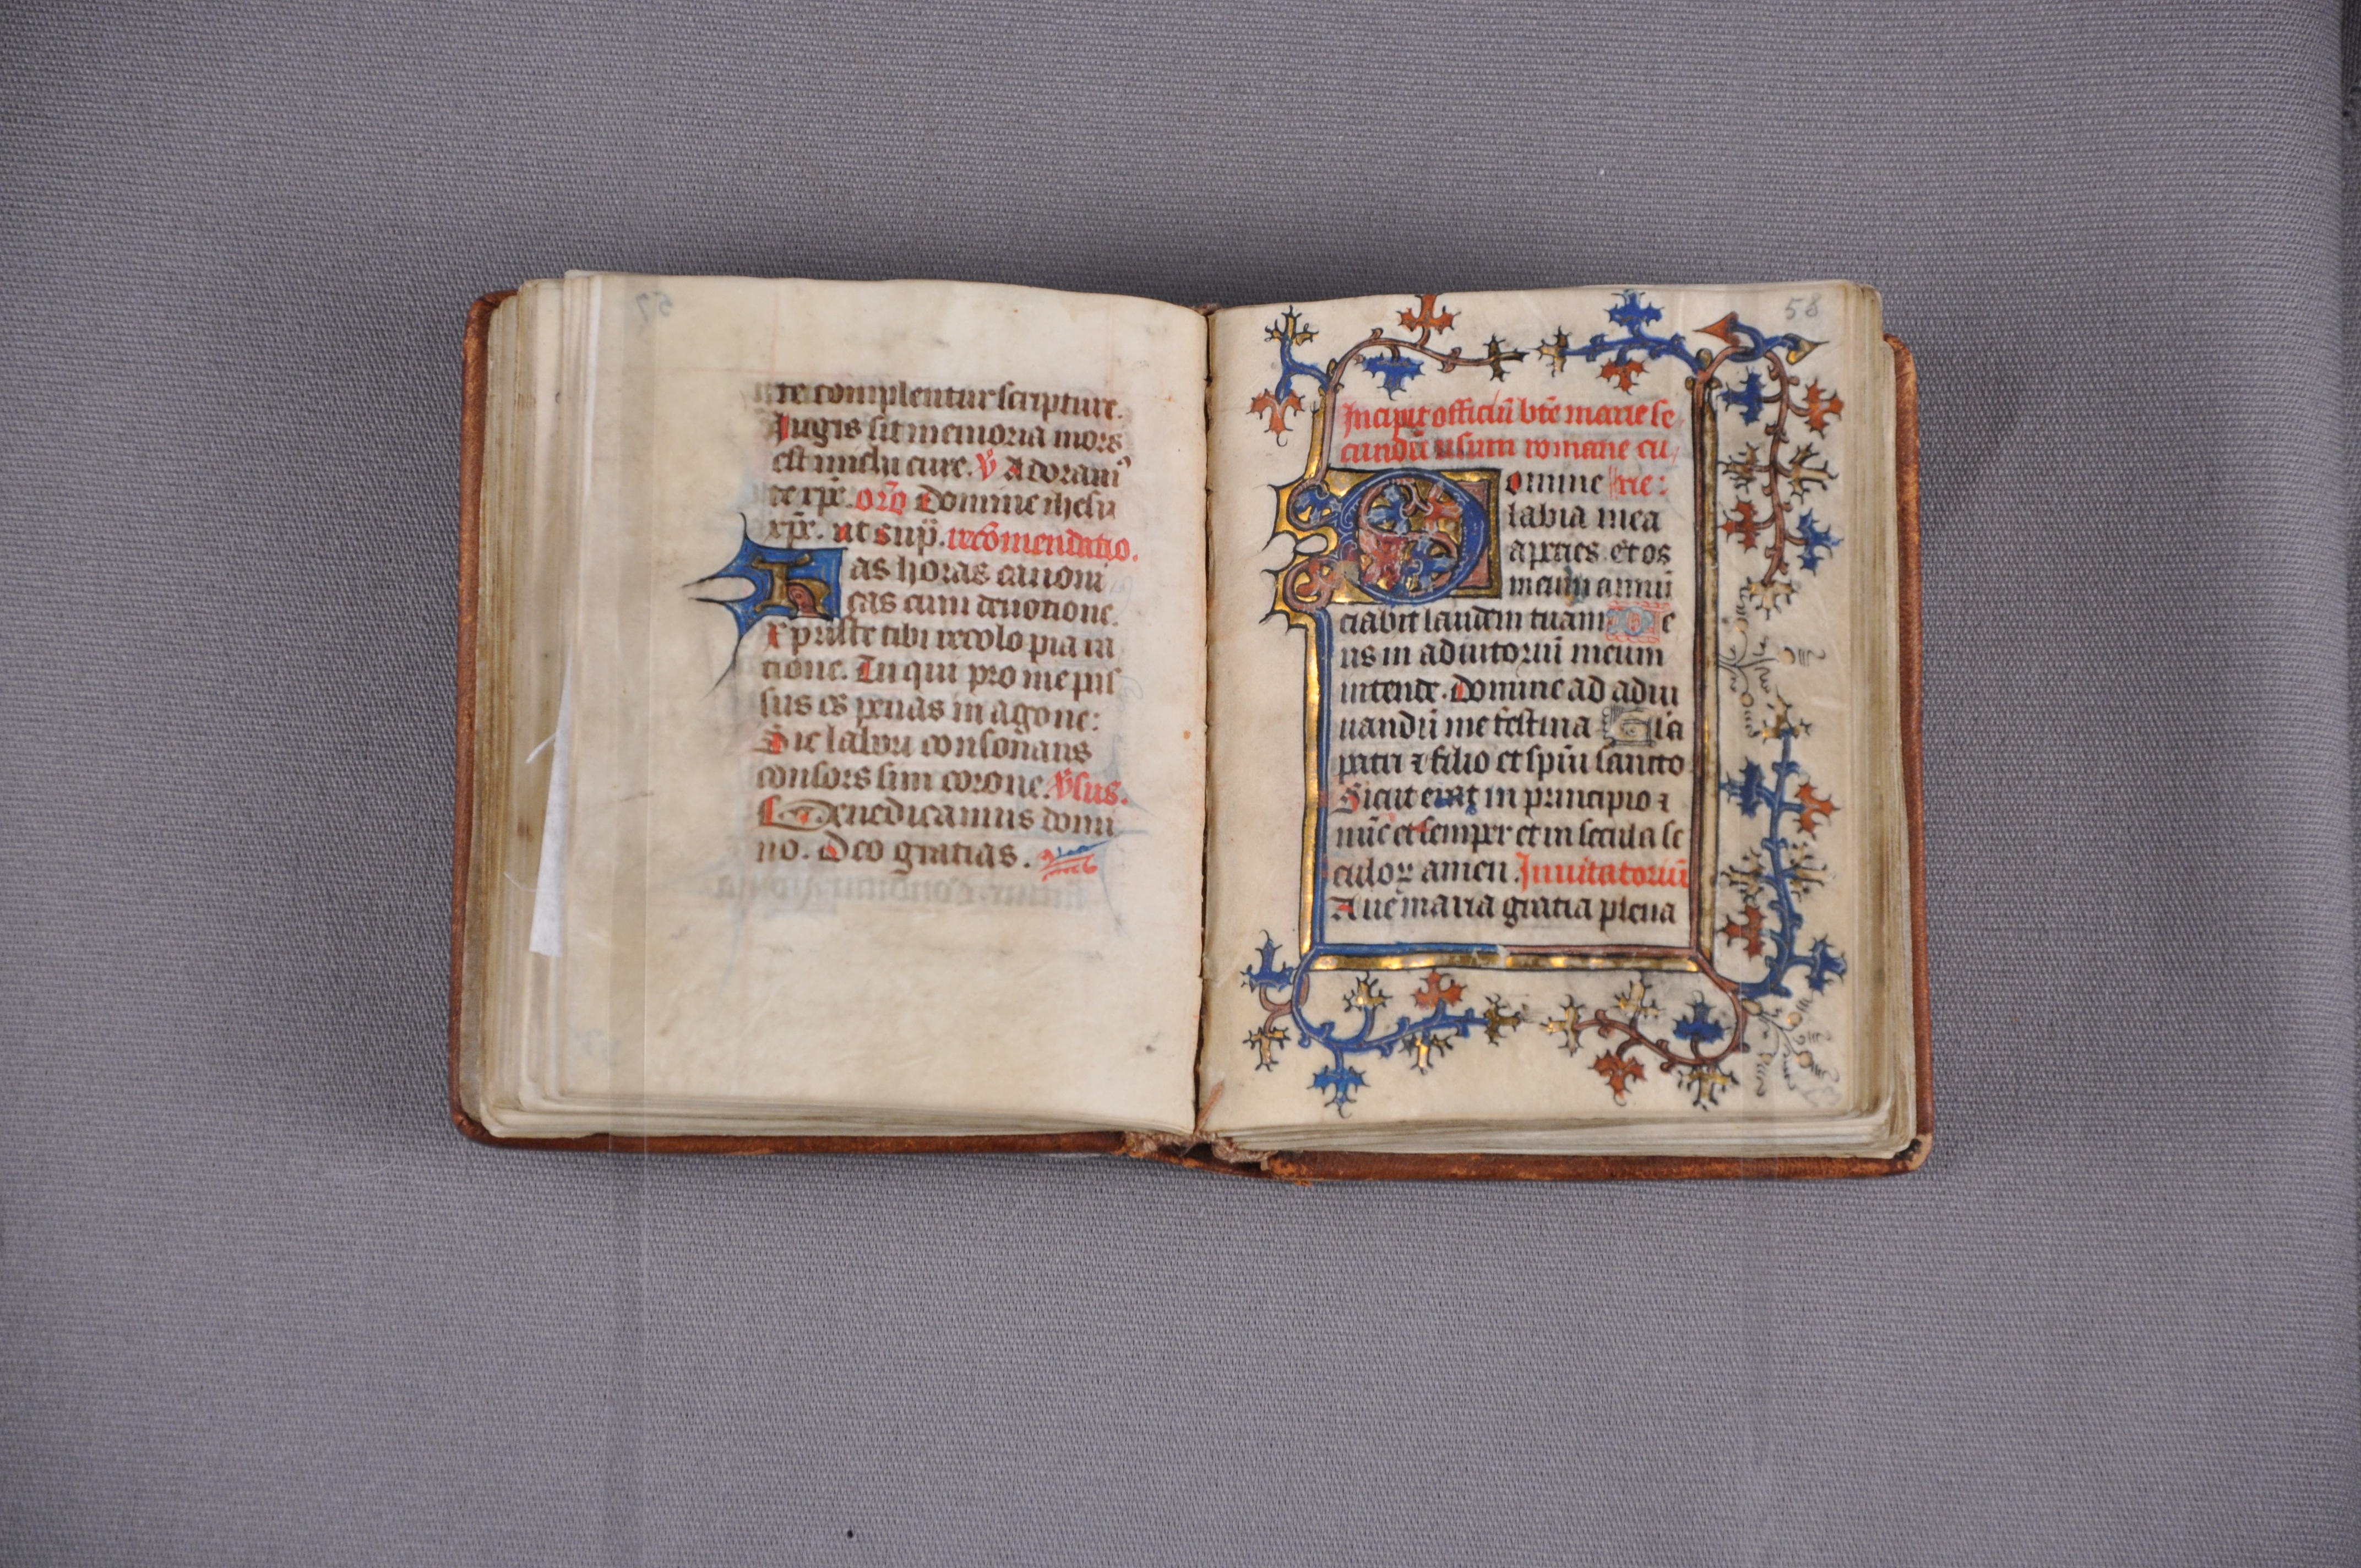 te complentur scripture.
Iugis sit memoria mors
est michi cure. v̄ Adoram9
te xp̄e. orō Domine ihesu
xp̄e. ut sup̄. recōmendatio.
Has horas canoni
cas cum deuotione.
Xpriste tibi recolo pia ra
tione. Tu qui pro me pas
sus es penas in agone:
Sic labori consonans
consors sim corone. v̄sus.
Benedicamus domi
no. Deo gratias.
58
Incipit officiū btē marie se
cundū usum romane cu
Domine rie:
labia mea
aperies. et os
meum annū
ciabit laudem tuam De
us in adiutoriū meum
intende. Domine ad adiu
uandū me festina Gl'ia
patri ⁊ filio et spiū sancto
Sicut erat in principio ⁊
nūc et semper et in secula se
culoꝝ amen. Inuitatoriū
Aue maria gratia plena